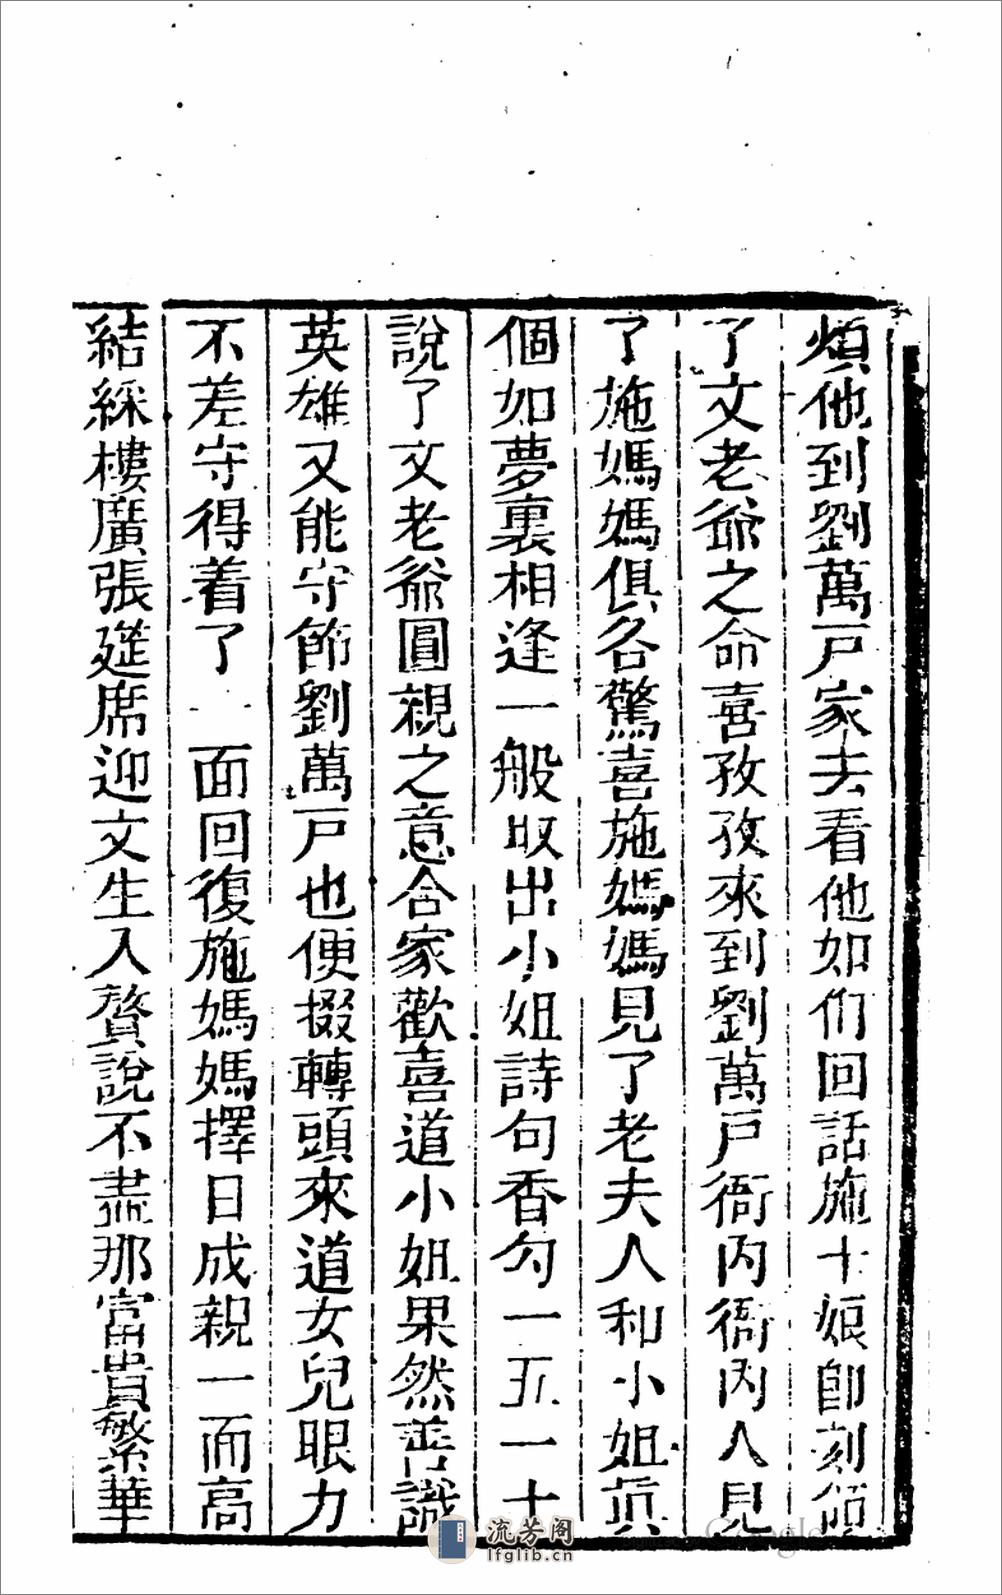 煩他到劉萬戸家去看他如們回話施十娘卽刻領
了文老爺之命喜孜孜來到劉萬戸衙內衙內人見
了施媽媽俱各驚喜施媽媽見了老夫人和小姐眞
個如夢裏相逢一般取出小姐詩句香勾一五一十
說了文老爺圓親之意合家歡喜道小姐果然善識
英雄又能守節劉萬戸也便掇轉頭來道女兒眼力
不差守得着了一面回復施媽媽擇日成親一面高
結綵樓廣張筵席迎文生入贅說不盡那富貴繁華
流芳阁
lfglib.cn
Google